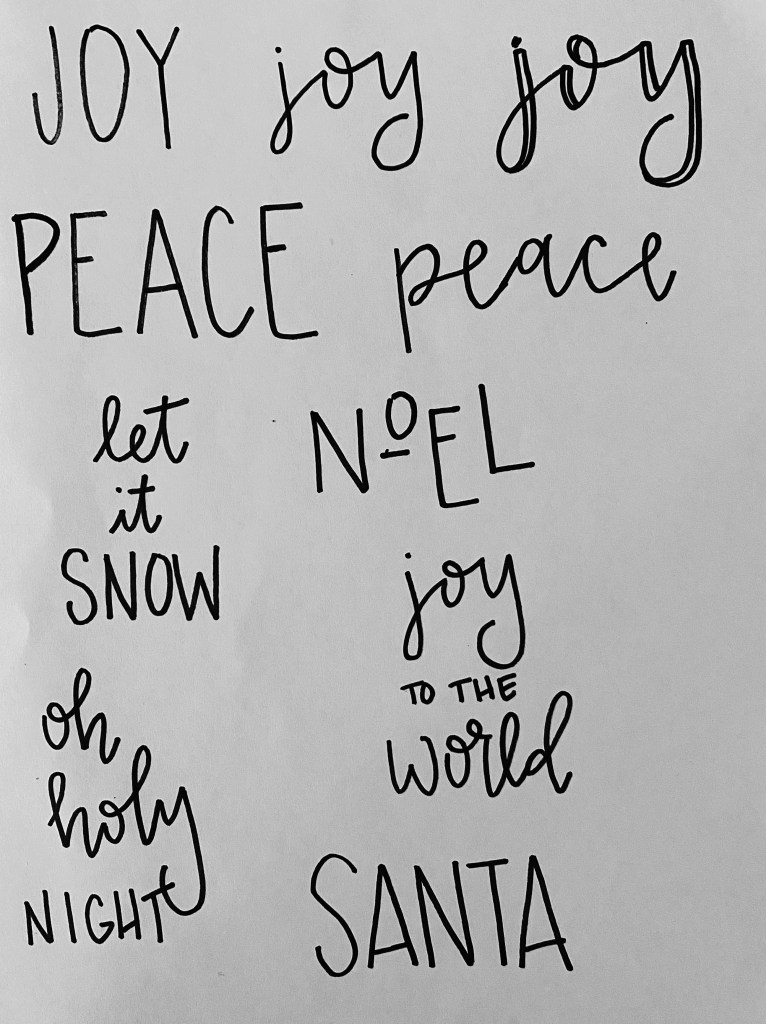 JOY joy joy
PEACE peace
let
it
SNOW
NOEL
joy
TO THE
world
oh
holy
NIGHT
SANTA